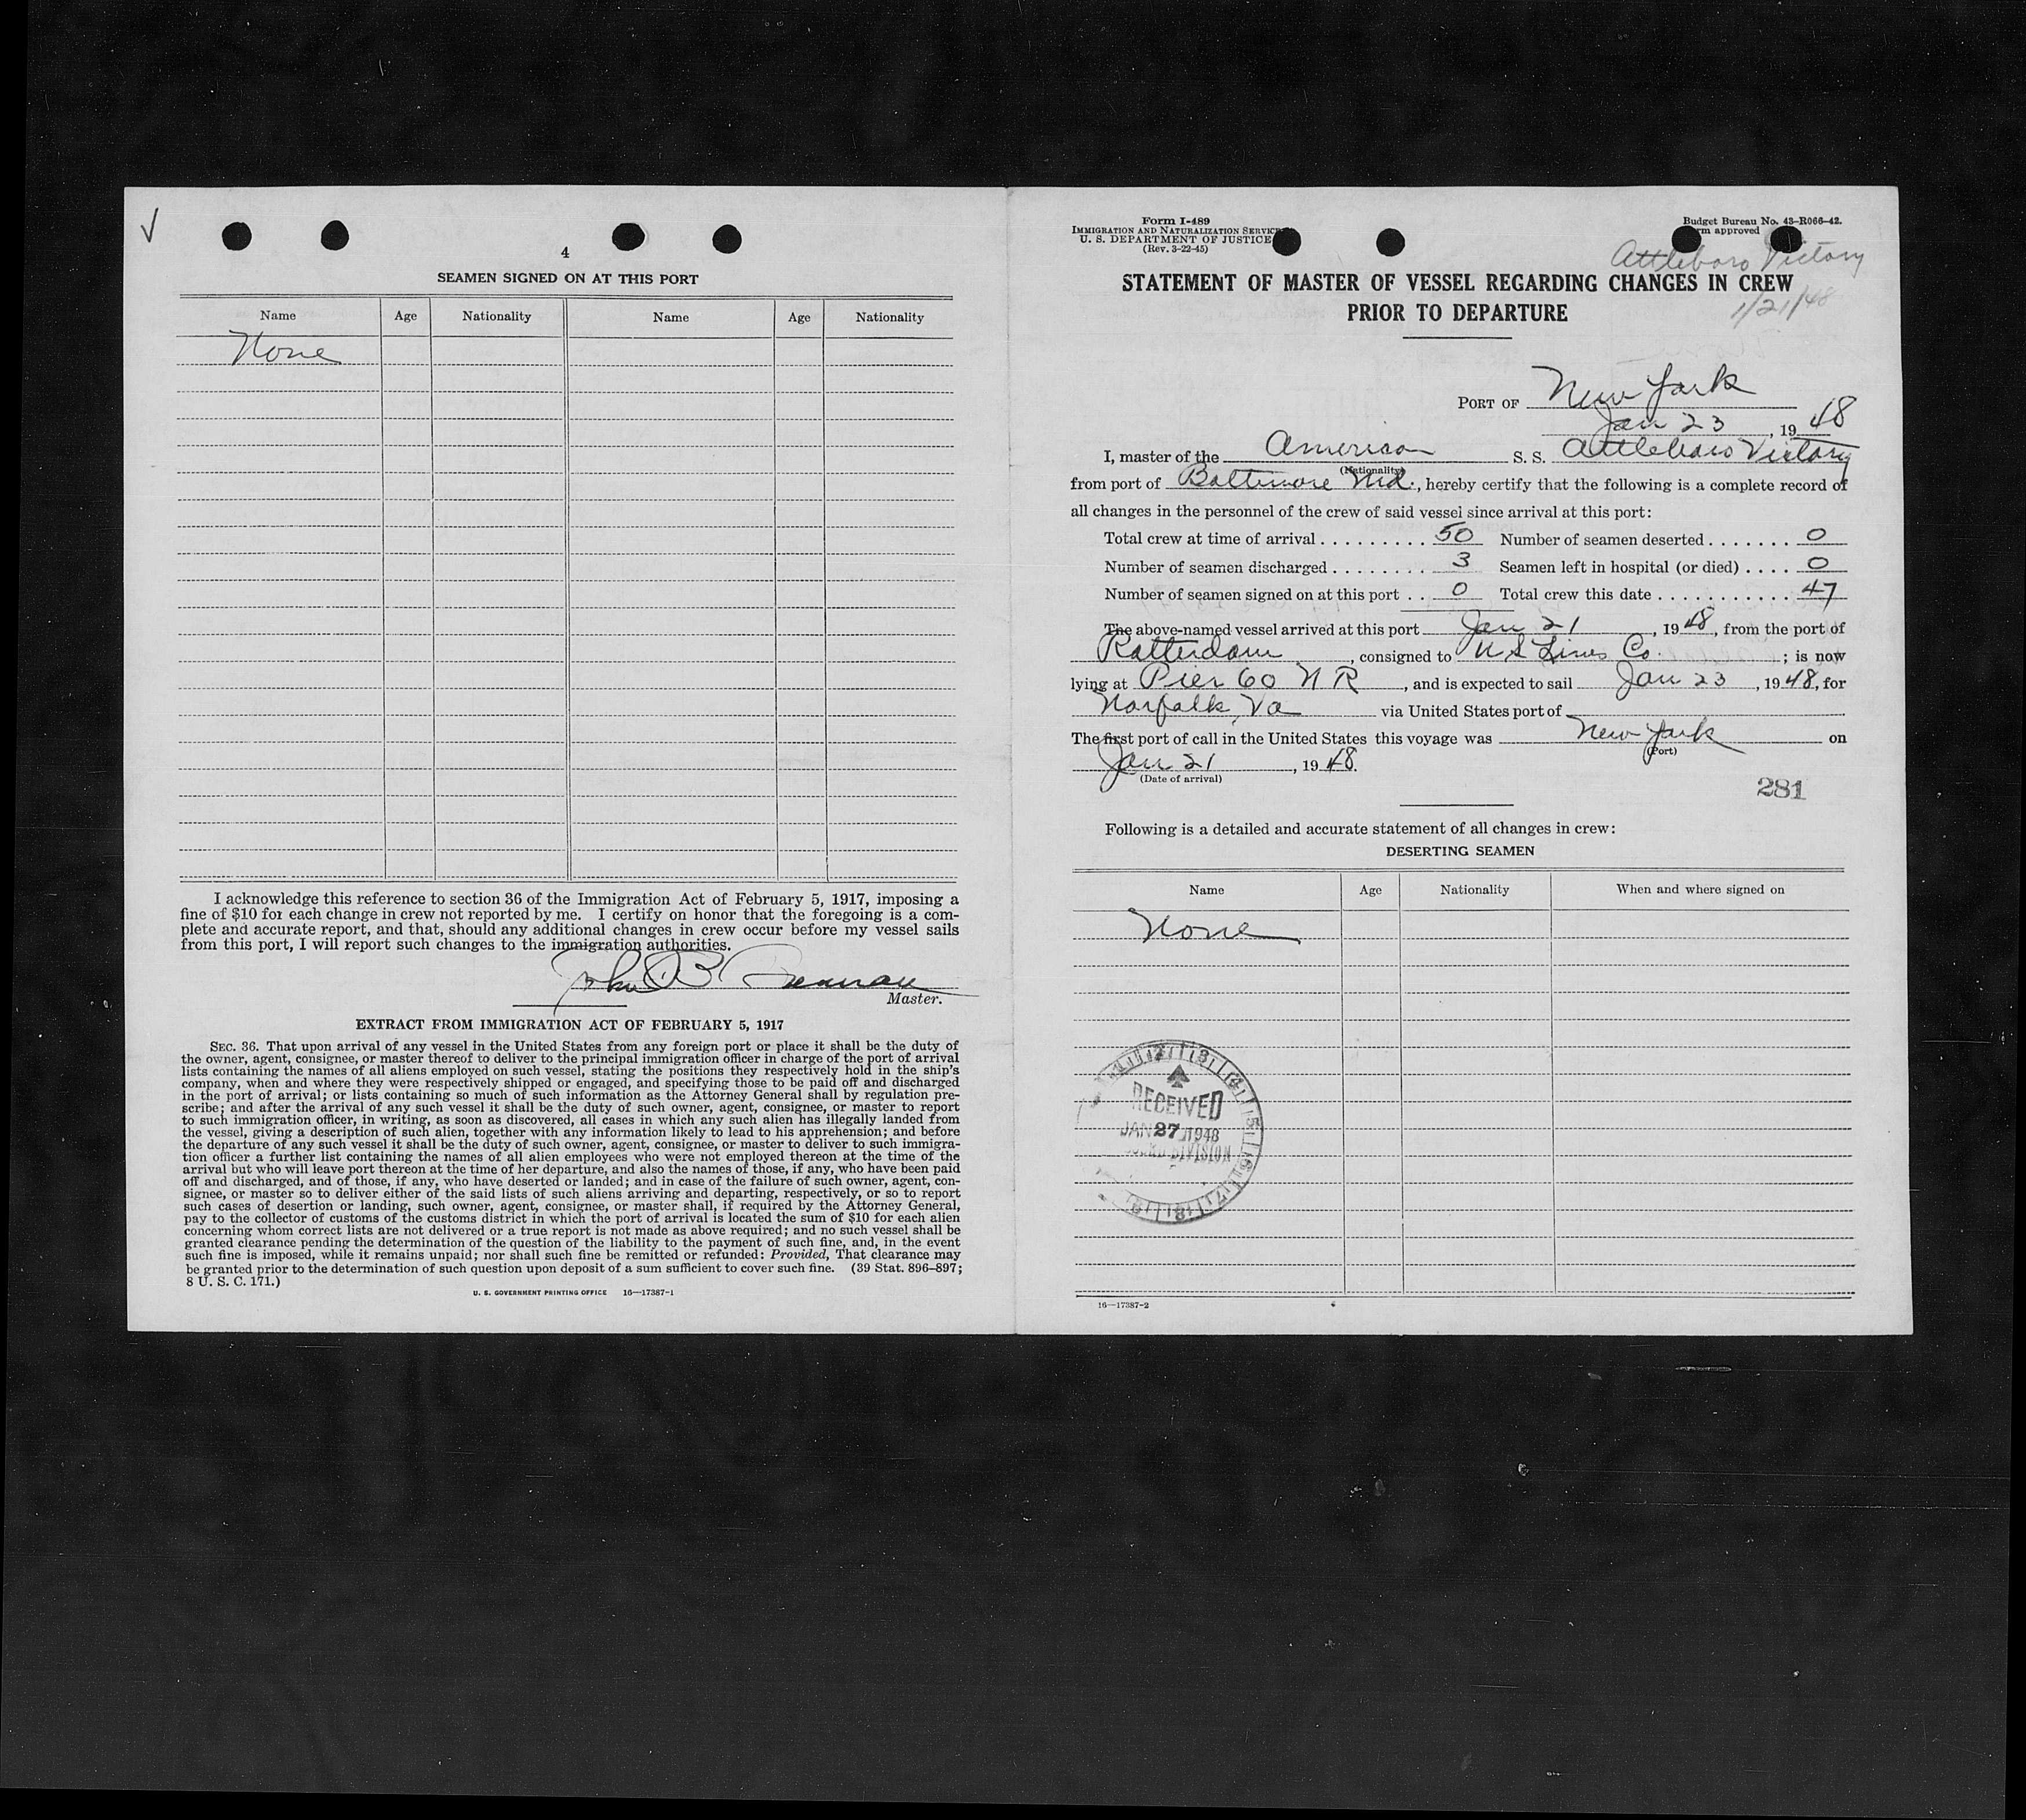 4
SEAMEN SIGNED ON AT THIS PORT
Name Age Nationality Name Age Nationality
None
I acknowledge this reference to section 36 of the Immigration Act of February 5, 1917, imposing a
fine of $10 for each change in crew not reported by me. I certify on honor that the foregoing is a com-
plete and accurate report, and that, should any additional changes in crew occur before my vessel sails
from this port, I will report such changes to the immigration authorities.
John B
Master.
EXTRACT FROM IMMIGRATION ACT OF FEBRUARY 5, 1917
SEC. 36. That upon arrival of any vessel in the United States from any foreign port or place it shall be the duty of
the owner, agent, consignee, or master thereof to deliver to the principal immigration officer in charge of the port of arrival
lists containing the names of all aliens employed on such vessel, stating the positions they respectively hold in the ship's
company, when and where they were respectively shipped or engaged, and specifying those to be paid off and discharged
in the port of arrival; or lists containing so much of such information as the Attorney General shall by regulation pre-
scribe; and after the arrival of any such vessel it shall be the duty of such owner, agent, consignee, or master to report
to such immigration officer, in writing, as soon as discovered, all cases in which any such alien has illegally landed from
the vessel, giving a description of such alien, together with any information likely to lead to his apprehension; and before
the departure of any such vessel it shall be the duty of such owner, agent, consignee, or master to deliver to such immigra-
tion officer a further list containing the names of all alien employees who were not employed thereon at the time of the
arrival but who will leave port thereon at the time of her departure, and also the names of those, if any, who have been paid
off and discharged, and of those, if any, who have deserted or landed; and in case of the failure of such owner, agent, con-
signee, or master so to deliver either of the said lists of such aliens arriving and departing, respectively, or so to report
such cases of desertion or landing, such owner, agent, consignee, or master shall, if required by the Attorney General,
pay to the collector of customs of the customs district in which the port of arrival is located the sum of $10 for each alien
concerning whom correct lists are not delivered or a true report is not made as above required; and no such vessel shall be
granted clearance pending the determination of the question of the liability to the payment of such fine, and, in the event
such fine is imposed, while it remains unpaid; nor shall such fine be remitted or refunded: Provided, That clearance may
be granted prior to the determination of such question upon deposit of a sum sufficient to cover such fine. (39 Stat. 896–897;
8 U. S. C. 171.)
U. S. GOVERNMENT PRINTING OFFICE 16—17387-1
Form I-489
IMMIGRATION AND NATURALIZATION SERVICE
U. S. DEPARTMENT OF JUSTICE
(Rev. 3-22-45)
Budget Bureau No. 43-R066-42.
approved
Attleboro Victory
1/21/48
STATEMENT OF MASTER OF VESSEL REGARDING CHANGES IN CREW
PRIOR TO DEPARTURE
PORT OF New York
Jan 23, 1948
I, master of the American S. S. Attleboro Victory
(Nationality)
from port of Baltimore Md., hereby certify that the following is a complete record of
all changes in the personnel of the crew of said vessel since arrival at this port:
Total crew at time of arrival . . . . . . . . . 50 Number of seamen deserted . . . . . . . 0
Number of seamen discharged . . . . . . . . 3 Seamen left in hospital (or died) . . . . 0
Number of seamen signed on at this port . . 0 Total crew this date . . . . . . . . . . . 47
The above-named vessel arrived at this port Jan 21, 1948, from the port of
Rotterdam, consigned to U S Lines Co. ; is now
lying at Pier 60 N R, and is expected to sail Jan 23, 1948, for
Norfolk, Va via United States port of
The first port of call in the United States this voyage was New York on
(Port)
Jan 21, 1948.
(Date of arrival)
281
Following is a detailed and accurate statement of all changes in crew:
DESERTING SEAMEN
Name Age Nationality When and where signed on
None
RECEIVED
JAN 27 1948
DIVISION
16—17387-2